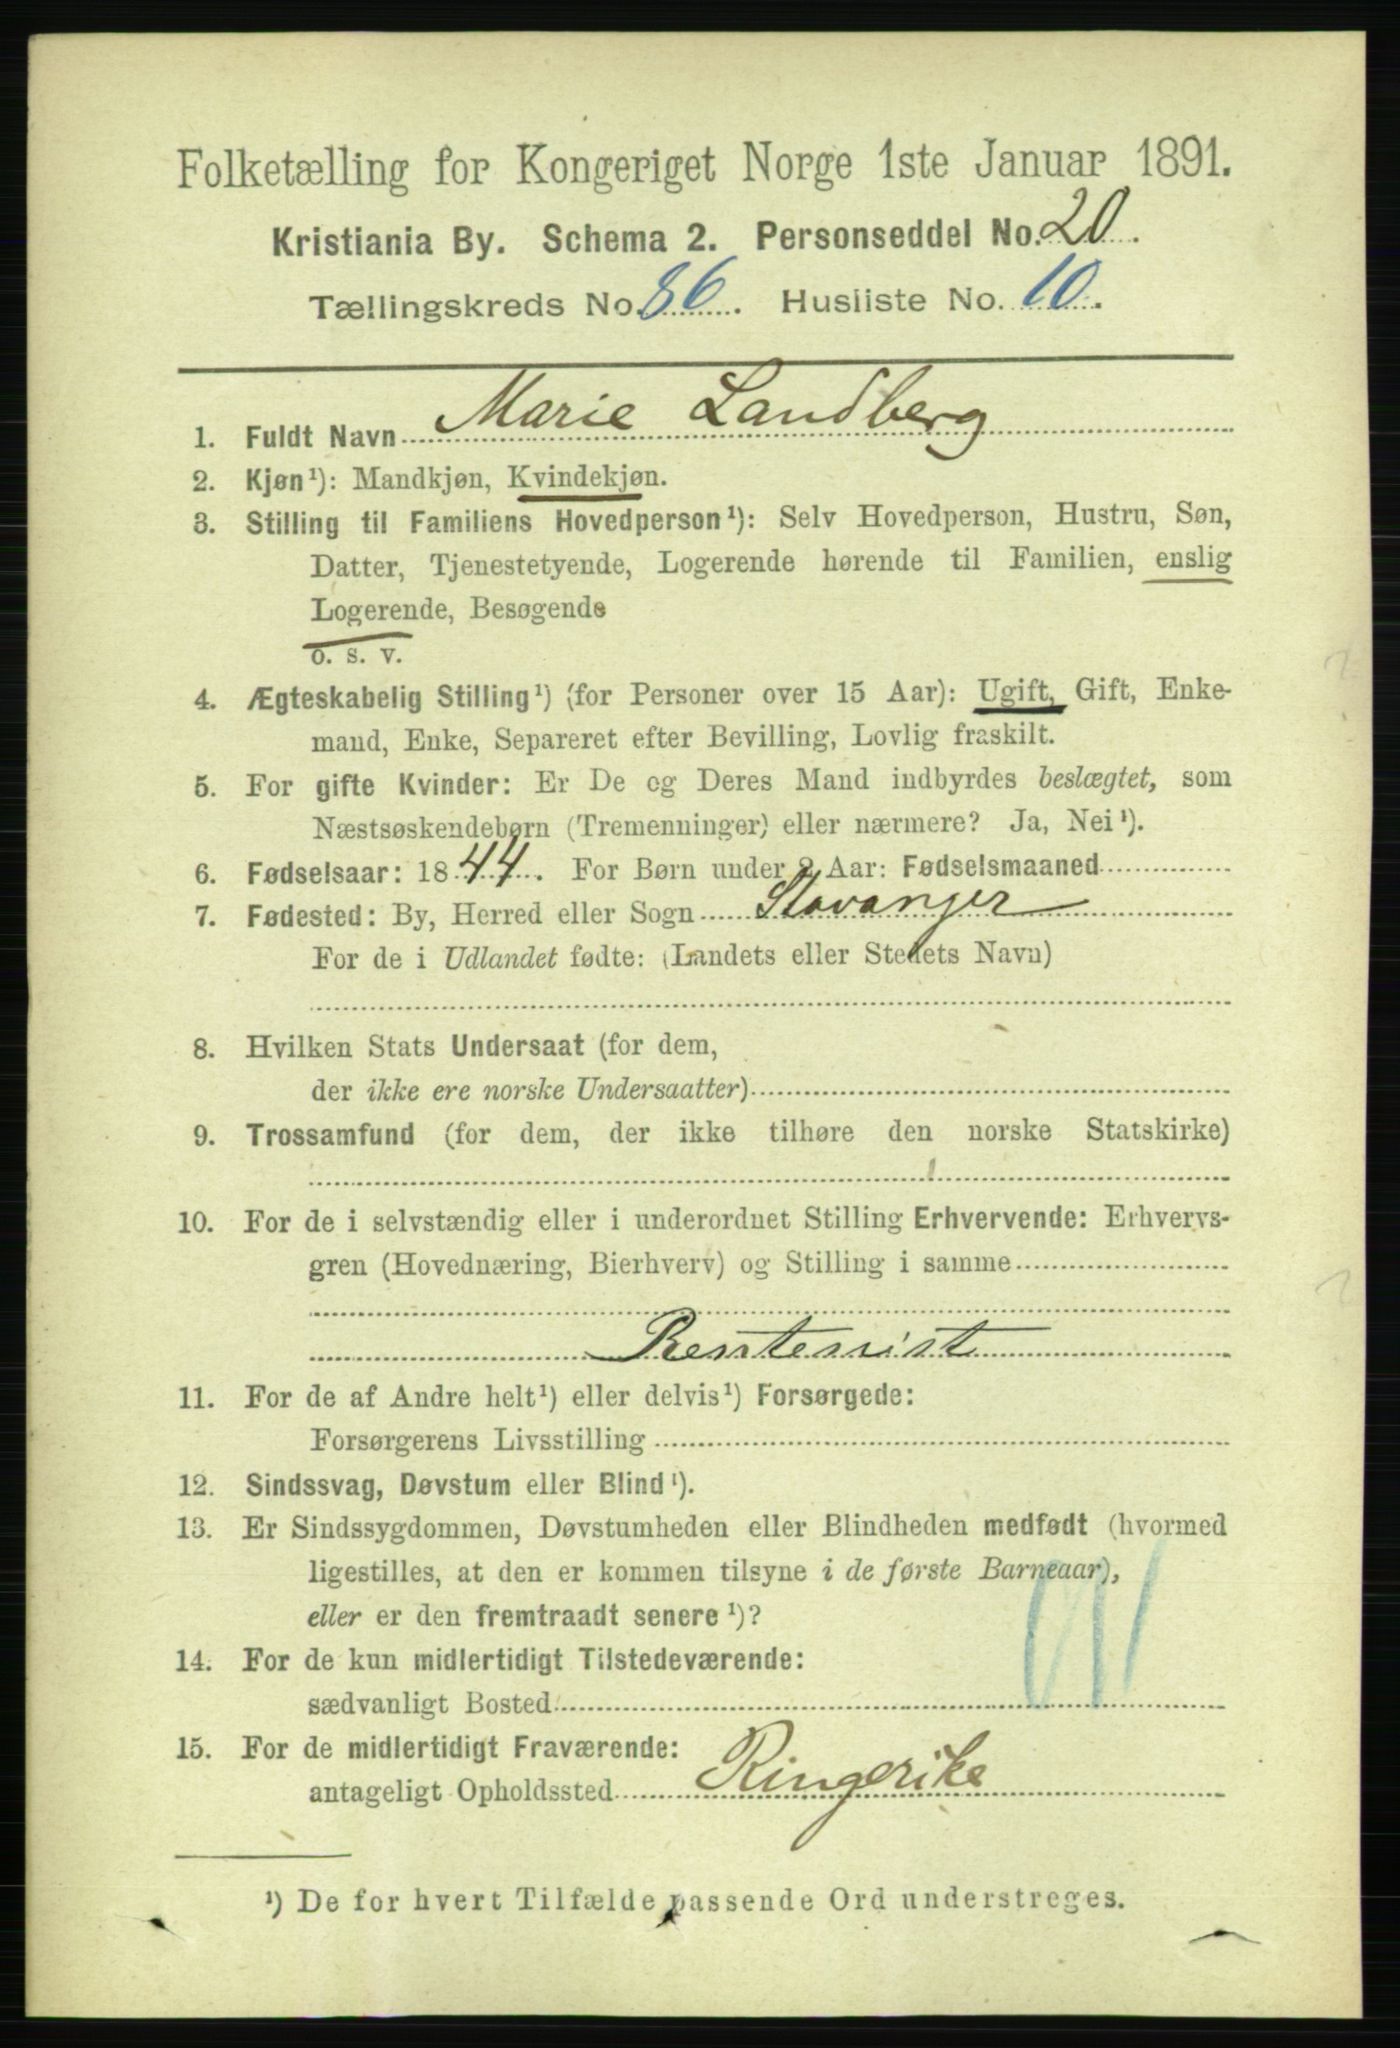 Folketælling for Kongeriget Norge 1ste Januar 1891.
Kristiania By. Schema 2. Personseddel No. 20.
Tællingskreds No. 86. Husliste No. 10.
1. Fuldt Navn Marie Landberg
2. Kjøn¹): Mandkjøn, Kvindekjøn.
3. Stilling til Familiens Hovedperson¹): Selv Hovedperson, Hustru, Søn,
Datter, Tjenestetyende, Logerende hørende til Familien, enslig
Logerende, Besøgende
o. s. v.
4. Ægteskabelig Stilling¹) (for Personer over 15 Aar): Ugift, Gift, Enke-
mand, Enke, Separeret efter Bevilling, Lovlig fraskilt.
5. For gifte Kvinder: Er De og Deres Mand indbyrdes beslægtet, som
Næstsøskendebørn (Tremenninger) eller nærmere? Ja, Nei¹).
6. Fødselsaar: 1844. For Børn under 2 Aar: Fødselsmaaned
7. Fødested: By, Herred eller Sogn Stavanger
For de i Udlandet fødte: (Landets eller Stedets Navn)
8. Hvilken Stats Undersaat (for dem,
der ikke ere norske Undersaatter)
9. Trossamfund (for dem, der ikke tilhøre den norske Statskirke)
10. For de i selvstændig eller i underordnet Stilling Erhvervende: Erhvervs-
gren (Hovednæring, Bierhverv) og Stilling i samme
Rentenist
11. For de af Andre helt¹) eller delvis¹) Forsørgede:
Forsørgerens Livsstilling
12. Sindssvag, Døvstum eller Blind¹).
13. Er Sindssygdommen, Døvstumheden eller Blindheden medfødt (hvormed
ligestilles, at den er kommen tilsyne i de første Barneaar),
eller er den fremtraadt senere¹)?
14. For de kun midlertidigt Tilstedeværende:
sædvanligt Bosted
15. For de midlertidigt Fraværende:
antageligt Opholdssted Ringerike
¹) De for hvert Tilfælde passende Ord understreges.